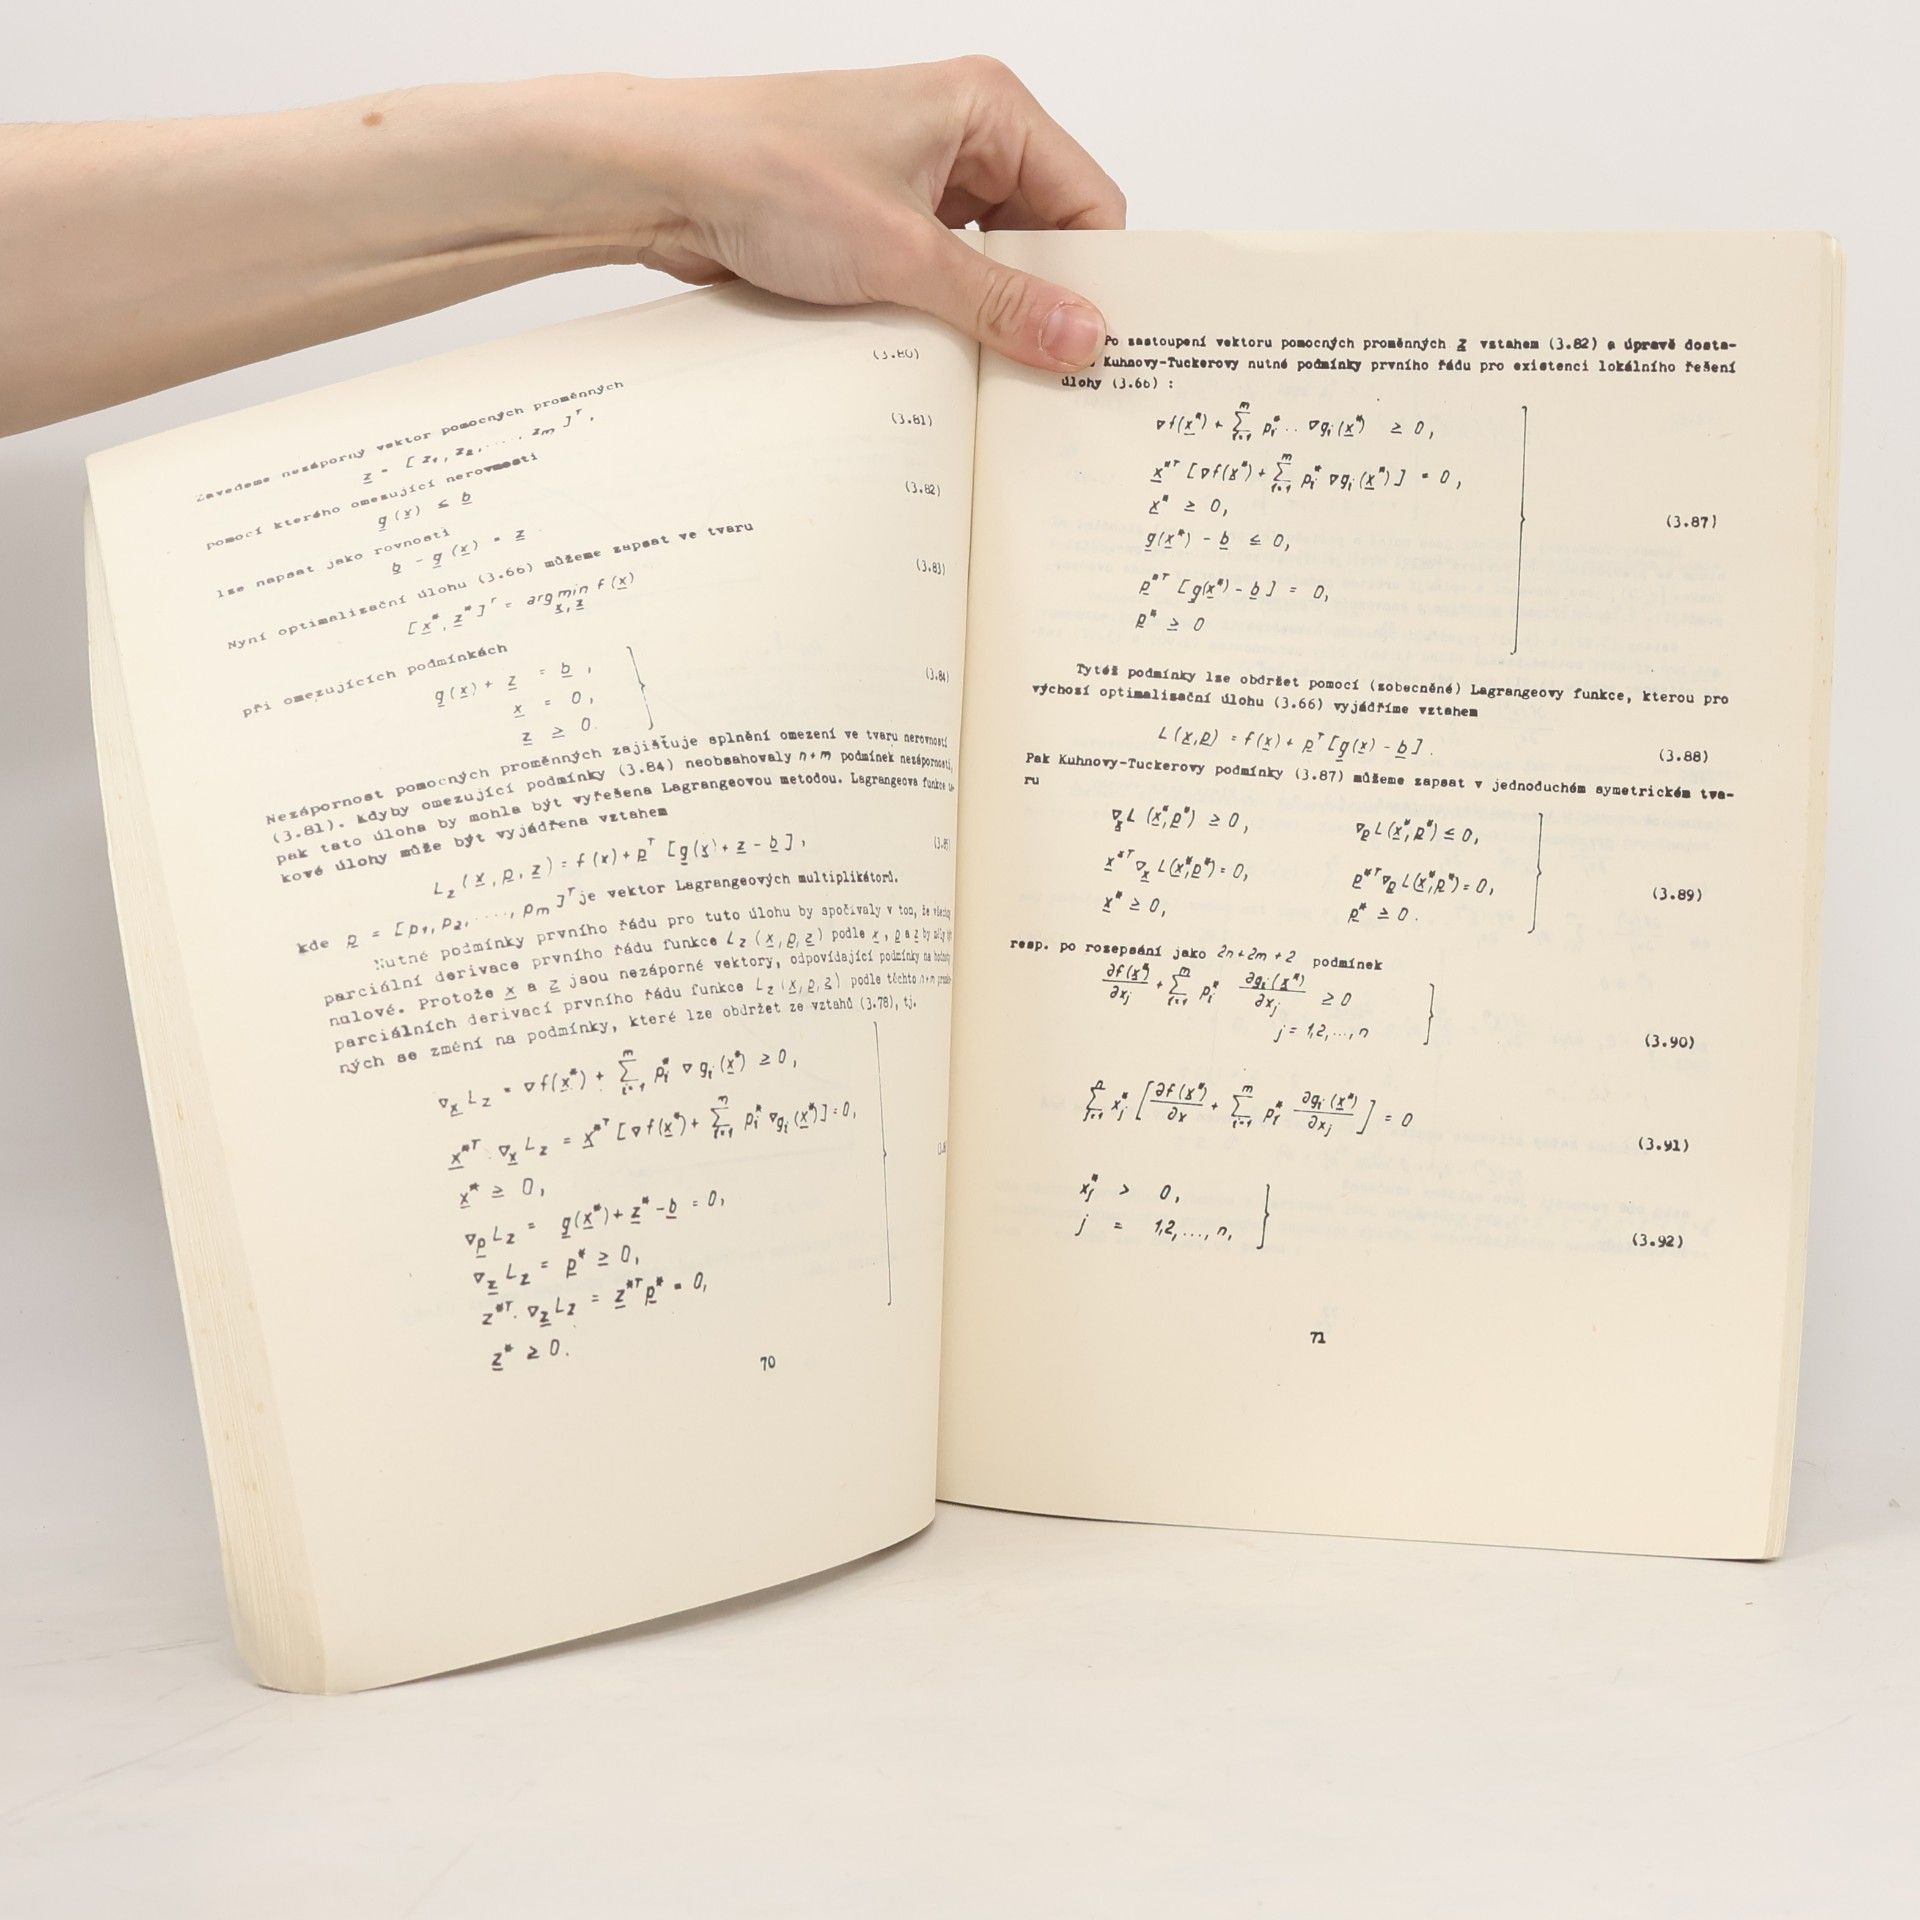 (3.80)
Zavedeme nezáporný vektor pomocných proměnných
z = [z₁, z₂, ..., z_m]ᵀ, (3.81)
pomocí kterého omezující nerovnosti
g(x) ≤ b (3.82)
lze napsat jako rovnosti
b - g(x) = z
Nyní optimalizační úlohu (3.66) můžeme zapsat ve tvaru
[x*, z*]ᵀ = arg min f(x) (3.83)
x, z
při omezujících podmínkách
g(x) + z = b,
x = 0, (3.84)
z ≥ 0.
Nezápornost pomocných proměnných zajišťuje splnění omezení ve tvaru nerovností
(3.81). Kdyby omezující podmínky (3.84) neobsahovaly n+m podmínek nezápornosti,
pak tato úloha by mohla být vyřešena Lagrangeovou metodou. Lagrangeova funkce
kové úlohy může být vyjádřena vztahem
L_z(x, p, z) = f(x) + pᵀ [g(x) + z - b],
kde p = [p₁, p₂, ...., p_m]ᵀ je vektor Lagrangeových multiplikátorů.
Nutné podmínky prvního řádu pro tuto úlohu by spočívaly v tom, že všechny
parciální derivace prvního řádu funkce L_z(x, p, z) podle x, p a z by měly být
nulové. Protože x a z jsou nezáporné vektory, odpovídající podmínky na hodnoty
parciálních derivací prvního řádu funkce L_z(x, p, z) podle těchto n+m proměn-
ných se změní na podmínky, které lze obdržet ze vztahů (3.78), tj.
∇ₓL_z = ∇f(x*) + ∑_{i=1}^{m} pᵢ* ∇gᵢ(x*) ≥ 0,
x*ᵀ. ∇ₓL_z = x*ᵀ [∇f(x*) + ∑_{i=1}^{m} pᵢ* ∇gᵢ(x*)] = 0,
x* ≥ 0,
∇_p L_z = g(x*) + z* - b = 0,
∇_z L_z = p* ≥ 0,
z*ᵀ. ∇_z L_z = z*ᵀ p* = 0,
z* ≥ 0.
70
Po zastoupení vektoru pomocných proměnných z vztahem (3.82) a úpravě dosta-
Kuhnovy-Tuckerovy nutné podmínky prvního řádu pro existenci lokálního řešení
úlohy (3.66) :
∇f(x*) + ∑_{i=1}^{m} pᵢ* .. ∇gᵢ(x*) ≥ 0,
x*ᵀ [∇f(x*) + ∑_{i=1}^{m} pᵢ* ∇gᵢ(x*)] = 0,
x* ≥ 0, (3.87)
g(x*) - b ≤ 0,
p*ᵀ [g(x*) - b] = 0,
p* ≥ 0
Tytéž podmínky lze obdržet pomocí (zobecněné) Lagrangeovy funkce, kterou pro
výchozí optimalizační úlohu (3.66) vyjádříme vztahem
L(x,p) = f(x) + pᵀ [g(x) - b]. (3.88)
Pak Kuhnovy-Tuckerovy podmínky (3.87) můžeme zapsat v jednoduchém symetrickém tva-
ru
∇ₓL(x*,p*) ≥ 0, ∇_pL(x*,p*) ≤ 0,
x*ᵀ∇ₓL(x*,p*) = 0, p*ᵀ∇_pL(x*,p*) = 0, (3.89)
x* ≥ 0, p* ≥ 0.
resp. po rozepsání jako 2n+2m+2 podmínek
∂f(x*)/∂xⱼ + ∑_{i=1}^{m} pᵢ* ∂gᵢ(x*)/∂xⱼ ≥ 0
j = 1,2,...,n (3.90)
∑_{j=1}^{n} xⱼ* [∂f(x*)/∂x + ∑_{i=1}^{m} pᵢ* ∂gᵢ(x*)/∂xⱼ] = 0 (3.91)
xⱼ* > 0,
j = 1,2,...,n, (3.92)
71